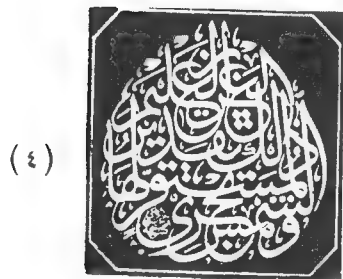 والشمس تجري لمستقر لها ذلك تقدير العزيز العليم
(٤)